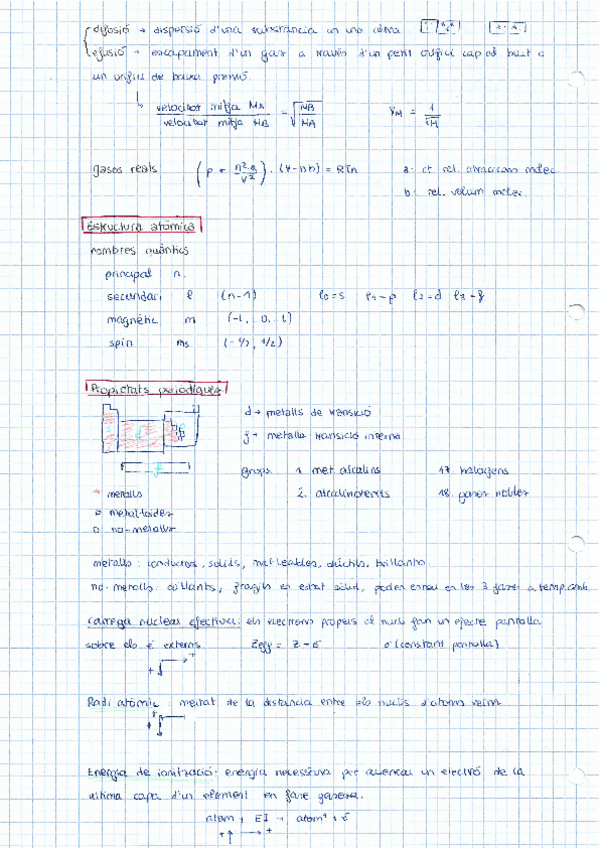 difusió → dispersió d'una substància en una altra
efusió → escapament d'un gas a través d'un petit orifici cap al buit o
un orifici de baixa pressió.
velocitat mitja MA / velocitat mitja MB = √(MB/MA)    VM = 1/√M
gasos reals (P + n²·a/V²) · (V-nb) = RTn    a: ct rel. atraccions molec.
b: rel. volum molec.
Estructura atòmica
nombres quàntics
principal n.
secundari l (n-1)    l0=s l1=p l2=d l3=f
magnètic m (-l, 0, l)
spin ms (-1/2, 1/2)
Propietats periòdiques
d → metalls de transició
d
f → metalls transició interna
f
grups 1. met. alcalins 17. halògens
→ metalls 2. alcalinoterris 18. gasos nobles
□ metal·loides
□ no-metalls
metalls: conductors, sòlids, mal·leables, dúctils, brillants.
no-metalls: aïllants, fràgils en estat sòlid, poden estar en les 3 fases a temp. amb.
càrrega nuclear efectiva: els electrons propers al nucli fan un efecte pantalla
sobre els é externs Zeff = Z - σ σ (constant pantalla)
+ +
Radi atòmic: meitat de la distancia entre els nuclis d'atoms veïns
+ +
Energia de ionització: energia necessària per arrencar un electró de la
última capa d'un element en fase gasosa.
atom + EI → atom⁺ + é
+ +